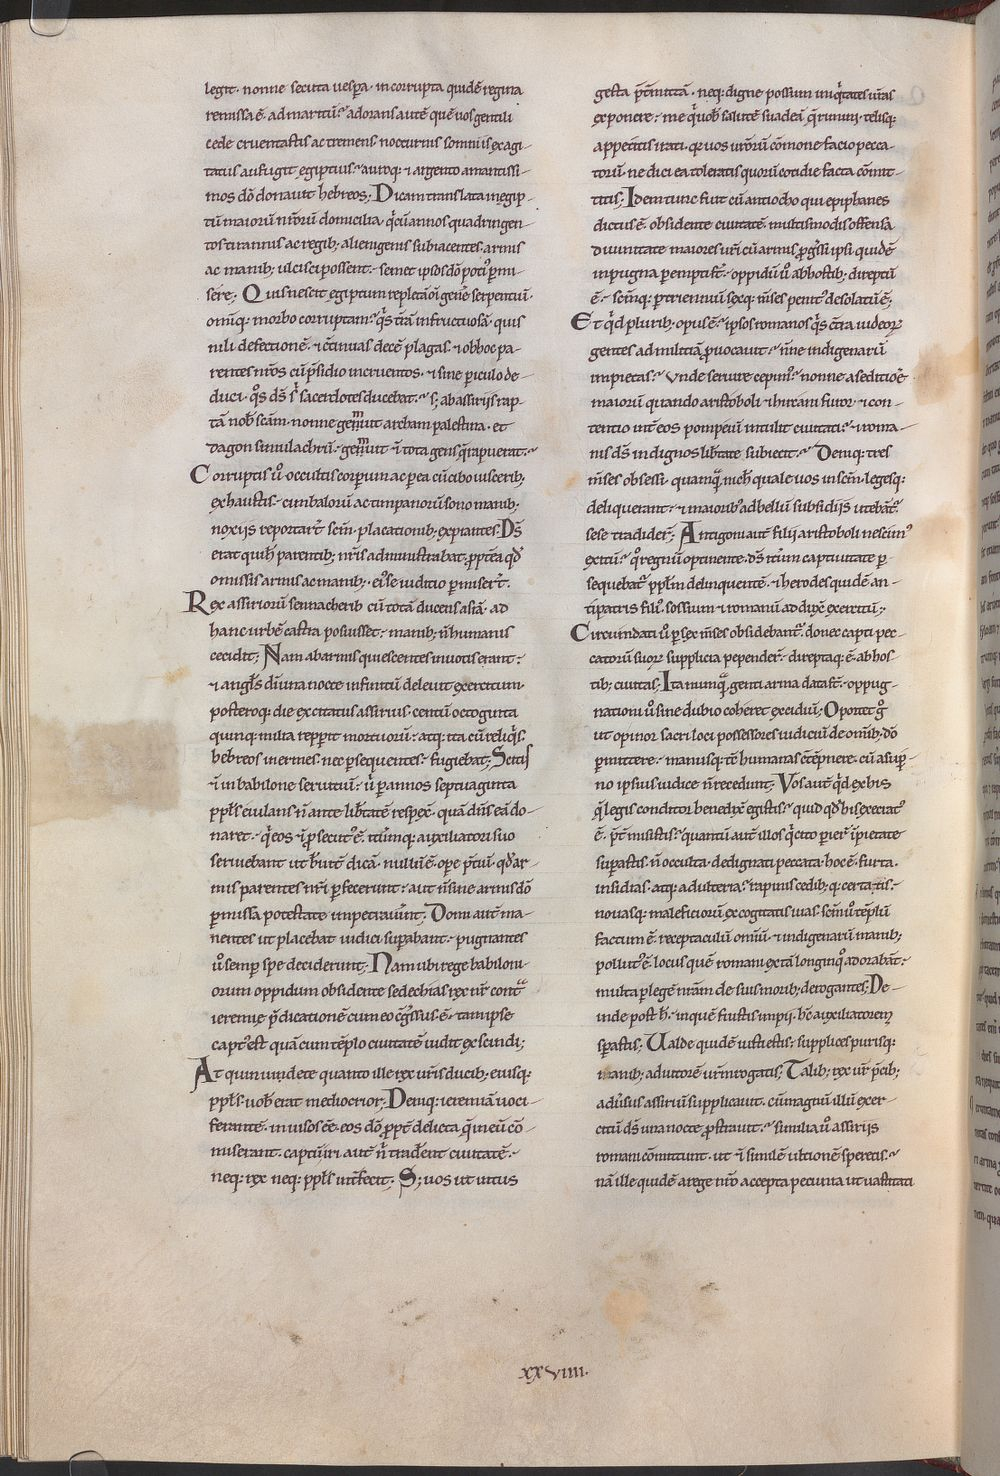 legit · nonne secuta uesꝑa · incorrupta quidē regina
remissa ē · ad maritū · adorans autē quē uos gentili
cede cruentastis ac tremens nocturnis somniis exagi-
tatus aufugit egiptius · auroq; & argento amantissi-
mos dō donauit hebreos; Dicam translata in egip-
tū maiorū nr̄orū domicilia · qͥ cū annos quadringen-
tos tirannis ac regib; alienigenis subiacentes · armis
ac manib; ulcisci possent · semet ipsos dō poti ꝑmi-
sere; Quis nescit egiptum repletā oī genē serpentiū ·
omniq; morbo corruptam · qͥs t̄rā infructuosā · quis
nili defectionē · & c̄tinuas decē plagas · & ob hoc pa-
rentes nr̄os cū p̄sidio incruentos · & sine periculo de-
duci · qͦs ds̄ sͥ sacerdotes ducebat · s; ab assiriis rap-
tā nob̄ sc̄am · nonne gemuit archam palestina · et
dagon simulachrū · gemuit & tota gens q̄ rapuerat ·
Corruptis u̅ occultis corꝑum ac ꝑea cū cibo uiscerib;
exhaustis · cimbalorū ac timpanorū sono manib;
noxiis reportar̄t sc̄m · placationib; expiantes; Ds̄
erat qui h̄ parentib; nr̄is administrabat · ꝓpterea qd̄
omissis armis ac manib; eiꝰ se iuditio ꝑmiser̄t ·
Rex assiriorū sennacherib cū totā ducens asiā · ad
hanc urbē castra posuisset · manib; n̄ humanis
cecidit; Nam ab armis quiescentes in uotis erant ·
& angl̄s diuina nocte infinitū deleuit exercitum ·
posteroq; die excitatus assirius · centū octoginta
quinq; milia repperit mortuorū · atq; ita cū reliqͥs ·
hebreos inermes · nec ꝑsequentes · fugiebat; Scitis
& in babilone seruitiū · u̅ ꝑ annos septuaginta
ppl̄s exulans n̄ ante lib̄tatē respex̄ · quā dn̄s eā do-
naret · q̄ eos & ꝓsecutꝰ ē · iterūq; auxiliatori suo
seruiebant ut breuit̄ dicā · nullū ē · oꝑe p̄tiū · qd̄ ar-
mis parentes nr̄i ꝑfecerunt · aut n̄ sine armis dō
ꝑmissa potestate impetrauer̄nt · Domi aut̄ ma-
nentes ut placebat iudici suꝑabant · pugnantes
u̅ semꝑ spe deciderunt; Nam ubi rege babiloni-
orum oppidum obsidente sedechias rex nr̄ contͣ
ieremie p̄dicatione cum eo c̄gressus ē · tam ipse
captꝰ est quā cum tēplo ciuitatē uidit excindi;
At quin uidete quanto ille rex ur̄is ducib; eiusq;
ppl̄s uob̄ erat mediocrior; Deniq; ieremiā uoci-
ferantē · inuisos eē eos dō ꝓptē delicta q̄ in eū cō-
miserant · captū iri aut̄ n̄ trader̄t ciuitatē ·
neq; rex neq; ppl̄s int̄fecit; S; uos ut intus
gesta p̄tmittā · neq; digne possum iniqͥtates ur̄as
exponere · me qͥ uob̄ salutē suadeā q̄runini · telisq;
appetitis irati · qr uos ur̄orū cōmonefacio pecca-
torū · ne dici ea toleratis quorū cotidie facta cōmit-
titis; Idem tunc fuit cū antiocho qui epiphanes
dictus ē · obsidente ciuitatē · multismodis offensa
diuinitate maiores ur̄i cū armis p̄gr̄ssi ipsi quidē
in pugna ꝑempti st̄ · oppidū u̅ ab hostib; direptū
ē · sc̄mq; ꝑ triennium sexq; m̄ses penitꝰ desolatū ē;
Et qͥd plurib; opus ē · ipsos romanos qͥs c̄tra iudeorꝝ
gentes ad militiā ꝓuocauit · n̄ne indigenarū
impietas · Vnde seruire cepimꝰ · nonne a seditiōe
maiorū quando aristoboli & hircani furor · & con-
tentio int̄ eos pompeiū intulit ciuitati · & roma-
nis ds̄ indignos lib̄tate subiecit · Deniq; tres
m̄ses obsessi · quamquā nichil quale uos in sc̄m · legesq;
deliquerant · & maioribꝰ ad bellū subsidiis utebāt̄
sese tradider̄; Antigoni aut̄ filii aristoboli nescimꝰ
exitū · qͦ regnū optinente · ds̄ iterum captiuitate ꝑ-
sequebat̄ pplm̄ delinquentē · & herodes quidē an-
tipatris filiꝰ · sossium & romanū adduxē exercitū;
Circundati u̅ ꝑ sex m̄ses obsidebant̄ · donec capti pec-
catorū suorꝝ supplicia pepender̄ · direptaq; ē ab hos-
tib; ciuitas; Ita nunquā genti arma data st̄ · oppug-
nationi u̅ sine dubio coheret excidiū; Oportet gͦ
ut opinor sacri loci possessores iudiciū de omīb; dō
ꝑmittere · manusq; tc̄ humanas c̄tēpnere · cū a suꝑ-
no ipsius iudice n̄ recedunt; Vos aut̄ qͥd ex his
q̄ legis conditor benedixē egistis · quid qd̄ his execratꝰ
ē · p̄t̄misistis · quantū aut̄ illos qͥ cito ꝑier̄ īpietate
suꝑastis · n̄ occulta · dedignati peccata · hoc ē · furta ·
insidias · atq; adulteria · rapinis cedib; q; certatis ·
nouasq; maleficiorū excogitatis uias · sc̄m u̅ tēplū
factum ē · receptaculū omniū · & indigenarū manib;
pollutꝰ ē · locus quē romani ex tā longinqͦ adorabāt̄ ·
multa ꝑ legē nr̄am de suis morib; derogantes; De-
inde post h̄ · in quē fuistis impii · h̄c auxiliatorem
sꝑastis; Ualde quidē iusti estis; supplices purisq;
manib; adiutorē ur̄m rogatis; Talib; rex ur̄ p̄cib;
aduersus assiriū supplicauit · cū magnū illū exer-
citū ds̄ una nocte ꝓstrauit · similia u̅ assiriis
romani cōmittunt · ut & similē ultionē speretis ·
nā ille quidē a rege nr̄o accepta pecunia ut uastitati
xxviiii·